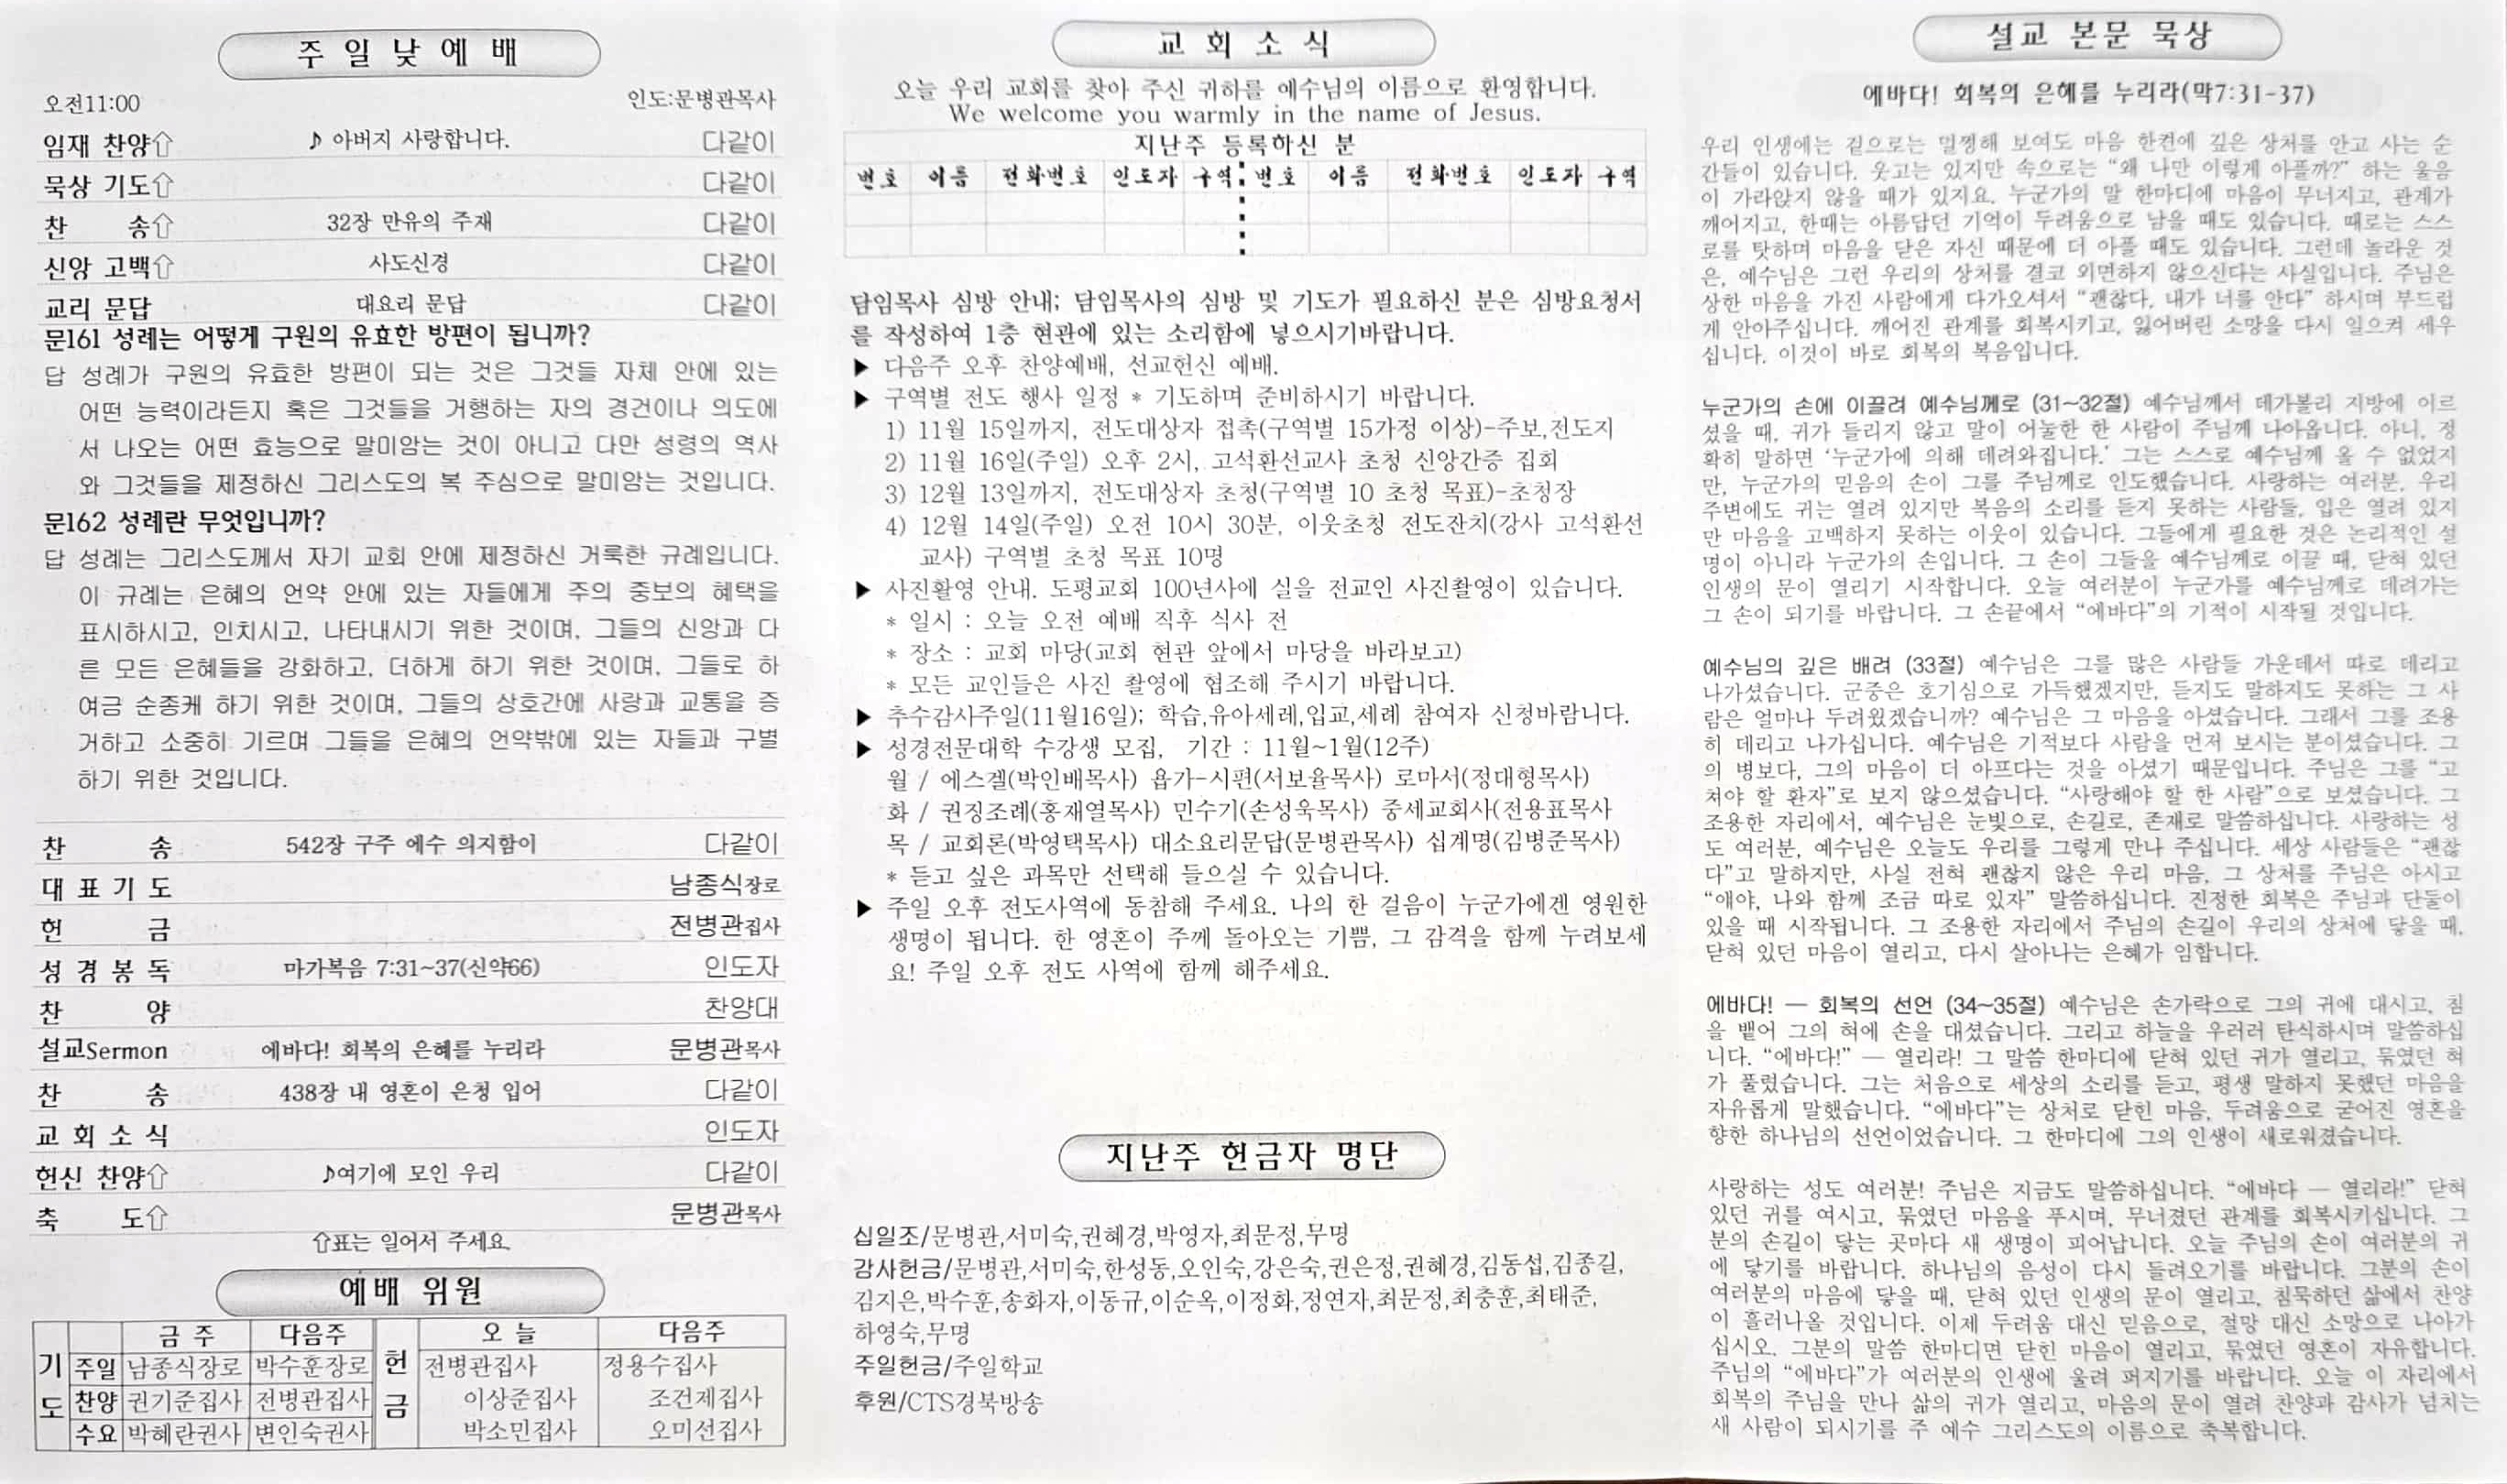 주 일 낮 예 배
오전11:00 인도:문병관목사
임재 찬양⇧ ♪ 아버지 사랑합니다. 다같이
묵상 기도⇧ 다같이
찬 송⇧ 32장 만유의 주재 다같이
신앙 고백⇧ 사도신경 다같이
교리 문답 대요리 문답 다같이
문161 성례는 어떻게 구원의 유효한 방편이 됩니까?
답 성례가 구원의 유효한 방편이 되는 것은 그것들 자체 안에 있는
어떤 능력이라든지 혹은 그것들을 거행하는 자의 경건이나 의도에
서 나오는 어떤 효능으로 말미암는 것이 아니고 다만 성령의 역사
와 그것들을 제정하신 그리스도의 복 주심으로 말미암는 것입니다.
문162 성례란 무엇입니까?
답 성례는 그리스도께서 자기 교회 안에 제정하신 거룩한 규례입니다.
이 규례는 은혜의 언약 안에 있는 자들에게 주의 중보의 혜택을
표시하시고, 인치시고, 나타내시기 위한 것이며, 그들의 신앙과 다
른 모든 은혜들을 강화하고, 더하게 하기 위한 것이며, 그들로 하
여금 순종케 하기 위한 것이며, 그들의 상호간에 사랑과 교통을 증
거하고 소중히 기르며 그들을 은혜의 언약밖에 있는 자들과 구별
하기 위한 것입니다.
찬 송 542장 구주 예수 의지함이 다같이
대 표 기 도 남종식장로
헌 금 전병관집사
성 경 봉 독 마가복음 7:31~37(신약66) 인도자
찬 양 찬양대
설교Sermon 에바다! 회복의 은혜를 누리라 문병관목사
찬 송 438장 내 영혼이 은청 입어 다같이
교 회 소 식 인도자
헌신 찬양⇧ ♪여기에 모인 우리 다같이
축 도⇧ 문병관목사
⇧표는 일어서 주세요
예배 위원
기도 금 주 다음주 헌금 오 늘 다음주
주일 남종식장로 박수훈장로 전병관집사 정용수집사
찬양 권기준집사 전병관집사 이상준집사 조건제집사
수요 박혜란권사 변인숙권사 박소민집사 오미선집사
교 회 소 식
오늘 우리 교회를 찾아 주신 귀하를 예수님의 이름으로 환영합니다.
We welcome you warmly in the name of Jesus.
지난주 등록하신 분
번호 이름 전화번호 인도자 구역 번호 이름 전화번호 인도자 구역
담임목사 심방 안내; 담임목사의 심방 및 기도가 필요하신 분은 심방요청서
를 작성하여 1층 현관에 있는 소리함에 넣으시기바랍니다.
▶ 다음주 오후 찬양예배, 선교헌신 예배.
▶ 구역별 전도 행사 일정 * 기도하며 준비하시기 바랍니다.
1) 11월 15일까지, 전도대상자 접촉(구역별 15가정 이상)-주보,전도지
2) 11월 16일(주일) 오후 2시, 고석환선교사 초청 신앙간증 집회
3) 12월 13일까지, 전도대상자 초청(구역별 10 초청 목표)-초청장
4) 12월 14일(주일) 오전 10시 30분, 이웃초청 전도잔치(강사 고석환선
교사) 구역별 초청 목표 10명
▶ 사진촬영 안내. 도평교회 100년사에 실을 전교인 사진촬영이 있습니다.
* 일시 : 오늘 오전 예배 직후 식사 전
* 장소 : 교회 마당(교회 현관 앞에서 마당을 바라보고)
* 모든 교인들은 사진 촬영에 협조해 주시기 바랍니다.
▶ 추수감사주일(11월16일); 학습,유아세례,입교,세례 참여자 신청바람니다.
▶ 성경전문대학 수강생 모집, 기간 : 11월~1월(12주)
월 / 에스겔(박인배목사) 욥가-시편(서보율목사) 로마서(정대형목사)
화 / 권징조례(홍재열목사) 민수기(손성욱목사) 중세교회사(전용표목사
목 / 교회론(박영택목사) 대소요리문답(문병관목사) 십계명(김병준목사)
* 듣고 싶은 과목만 선택해 들으실 수 있습니다.
▶ 주일 오후 전도사역에 동참해 주세요. 나의 한 걸음이 누군가에겐 영원한
생명이 됩니다. 한 영혼이 주께 돌아오는 기쁨, 그 감격을 함께 누려보세
요! 주일 오후 전도 사역에 함께 해주세요.
지난주 헌금자 명단
십일조/문병관,서미숙,권혜경,박영자,최문정,무명
감사헌금/문병관,서미숙,한성동,오인숙,강은숙,권은정,권혜경,김동섭,김종길,
김지은,박수훈,송화자,이동규,이순옥,이정화,정연자,최문정,최충훈,최태준,
하영숙,무명
주일헌금/주일학교
후원/CTS경북방송
설교 본문 묵상
에바다! 회복의 은혜를 누리라(막7:31-37)
우리 인생에는 겉으로는 멀쩡해 보여도 마음 한켠에 깊은 상처를 안고 사는 순
간들이 있습니다. 웃고는 있지만 속으로는 “왜 나만 이렇게 아플까?” 하는 울음
이 가라앉지 않을 때가 있지요. 누군가의 말 한마디에 마음이 무너지고, 관계가
깨어지고, 한때는 아름답던 기억이 두려움으로 남을 때도 있습니다. 때로는 스스
로를 탓하며 마음을 닫은 자신 때문에 더 아플 때도 있습니다. 그런데 놀라운 것
은, 예수님은 그런 우리의 상처를 결코 외면하지 않으신다는 사실입니다. 주님은
상한 마음을 가진 사람에게 다가오셔서 “괜찮다. 내가 너를 안다” 하시며 부드럽
게 안아주십니다. 깨어진 관계를 회복시키고, 잃어버린 소망을 다시 일으켜 세우
십니다. 이것이 바로 회복의 복음입니다.
누군가의 손에 이끌려 예수님께로 (31~32절) 예수님께서 데가볼리 지방에 이르
셨을 때, 귀가 들리지 않고 말이 어눌한 한 사람이 주님께 나아옵니다. 아니, 정
확히 말하면 ‘누군가에 의해 데려와집니다.’ 그는 스스로 예수님께 올 수 없었지
만, 누군가의 믿음의 손이 그를 주님께로 인도했습니다. 사랑하는 여러분, 우리
주변에도 귀는 열려 있지만 복음의 소리를 듣지 못하는 사람들, 입은 열려 있지
만 마음을 고백하지 못하는 이웃이 있습니다. 그들에게 필요한 것은 논리적인 설
명이 아니라 누군가의 손입니다. 그 손이 그들을 예수님께로 이끌 때, 닫혀 있던
인생의 문이 열리기 시작합니다. 오늘 여러분이 누군가를 예수님께로 데려가는
그 손이 되기를 바랍니다. 그 손끝에서 “에바다”의 기적이 시작될 것입니다.
예수님의 깊은 배려 (33절) 예수님은 그를 많은 사람들 가운데서 따로 데리고
나가셨습니다. 군중은 호기심으로 가득했겠지만, 듣지도 말하지도 못하는 그 사
람은 얼마나 두려웠겠습니까? 예수님은 그 마음을 아셨습니다. 그래서 그를 조용
히 데리고 나가십니다. 예수님은 기적보다 사람을 먼저 보시는 분이셨습니다. 그
의 병보다, 그의 마음이 더 아프다는 것을 아셨기 때문입니다. 주님은 그를 “고
쳐야 할 환자”로 보지 않으셨습니다. “사랑해야 할 한 사람”으로 보셨습니다. 그
조용한 자리에서, 예수님은 눈빛으로, 손길로, 존재로 말씀하십니다. 사랑하는 성
도 여러분, 예수님은 오늘도 우리를 그렇게 만나 주십니다. 세상 사람들은 “괜찮
다”고 말하지만, 사실 전혀 괜찮지 않은 우리 마음, 그 상처를 주님은 아시고
“얘야, 나와 함께 조금 따로 있자” 말씀하십니다. 진정한 회복은 주님과 단둘이
있을 때 시작됩니다. 그 조용한 자리에서 주님의 손길이 우리의 상처에 닿을 때,
닫혀 있던 마음이 열리고, 다시 살아나는 은혜가 임합니다.
에바다! — 회복의 선언 (34~35절) 예수님은 손가락으로 그의 귀에 대시고, 침
을 뱉어 그의 혀에 손을 대셨습니다. 그리고 하늘을 우러러 탄식하시며 말씀하십
니다. “에바다!” — 열리라! 그 말씀 한마디에 닫혀 있던 귀가 열리고, 묶였던 혀
가 풀렸습니다. 그는 처음으로 세상의 소리를 듣고, 평생 말하지 못했던 마음을
자유롭게 말했습니다. “에바다”는 상처로 닫힌 마음, 두려움으로 굳어진 영혼을
향한 하나님의 선언이었습니다. 그 한마디에 그의 인생이 새로워졌습니다.
사랑하는 성도 여러분! 주님은 지금도 말씀하십니다. “에바다 — 열리라!” 닫혀
있던 귀를 여시고, 묶였던 마음을 푸시며, 무너졌던 관계를 회복시키십니다. 그
분의 손길이 닿는 곳마다 새 생명이 피어납니다. 오늘 주님의 손이 여러분의 귀
에 닿기를 바랍니다. 하나님의 음성이 다시 들려오기를 바랍니다. 그분의 손이
여러분의 마음에 닿을 때, 닫혀 있던 인생의 문이 열리고, 침묵하던 삶에서 찬양
이 흘러나올 것입니다. 이제 두려움 대신 믿음으로, 절망 대신 소망으로 나아가
십시오. 그분의 말씀 한마디면 닫힌 마음이 열리고, 묶였던 영혼이 자유합니다.
주님의 “에바다”가 여러분의 인생에 울려 퍼지기를 바랍니다. 오늘 이 자리에서
회복의 주님을 만나 삶의 귀가 열리고, 마음의 문이 열려 찬양과 감사가 넘치는
새 사람이 되시기를 주 예수 그리스도의 이름으로 축복합니다.